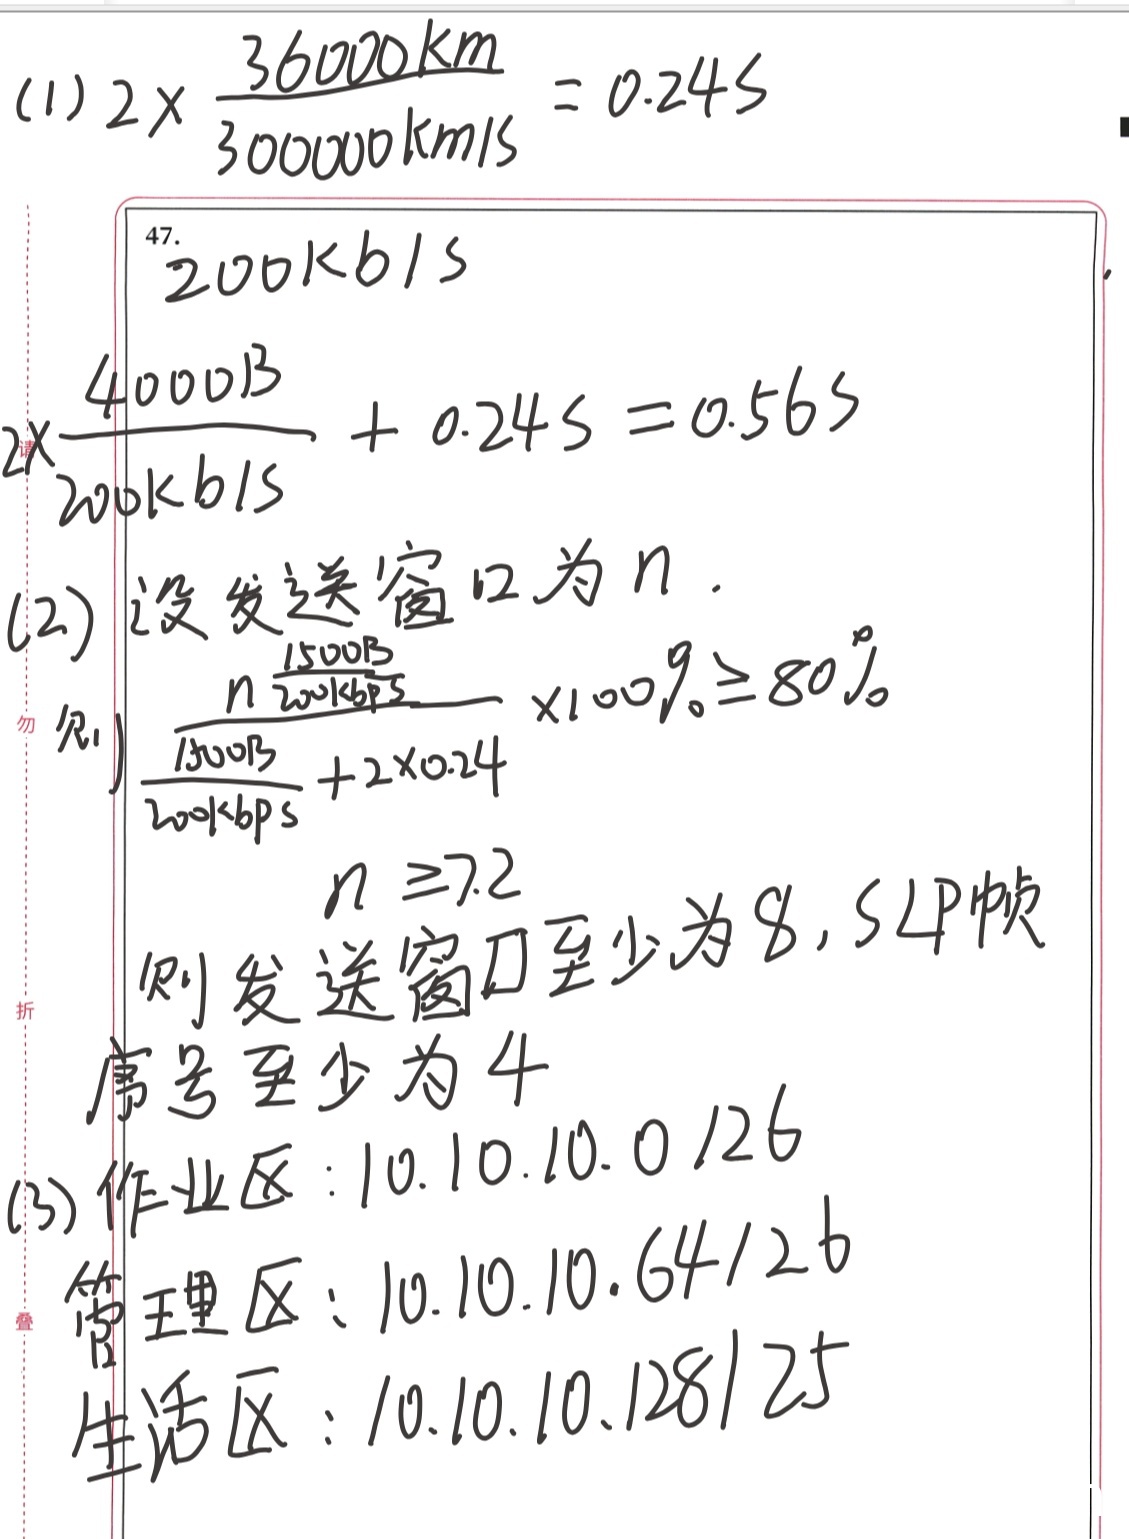 (1) 2× 36000km/300000km/s = 0.24s
47.
200kb/s
2× 4000B/200kb/s + 0.24s = 0.56s
请
(2) 设发送窗口为n.
则 n 1500B/200kbps / (1500B/200kbps + 2×0.24) ×100% ≥ 80%
勿
n ≥7.2
则发送窗口至少为8, SLP帧
折
序号至少为4
(3) 作业区: 10.10.10.0/26
管理区: 10.10.10.64/26
叠
生活区: 10.10.10.128/25